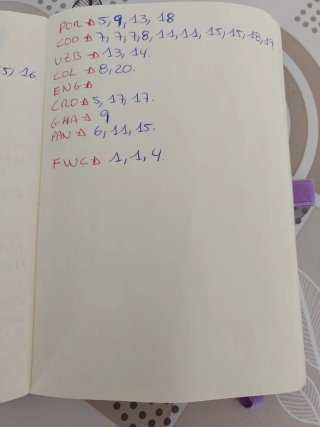 5, 16.
POR → 5, 9, 13, 18
COD → 7, 7, 7, 8, 11, 11, 15, 15, 18, 19
UZB → 13, 14.
COL → 8, 20.
ENG →
CRO → 5, 17, 17.
GHA → 9
PAN → 6, 11, 15.
FWC → 1, 1, 4.